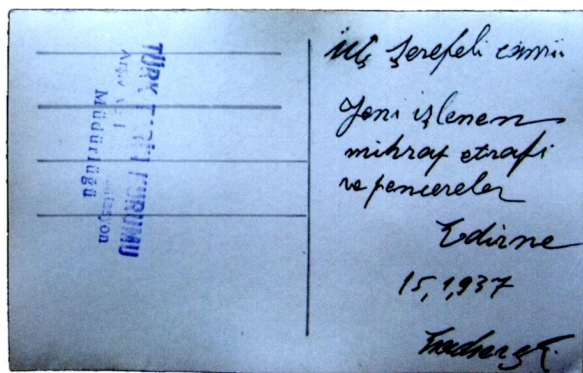 TÜRK TARİH KURUMU
Arşiv ve
Müdürlüğü
Üç Şerefeli camii
Yeni izlenen
mihrap etrafi
ve pencereler
Edirne
15,1,937